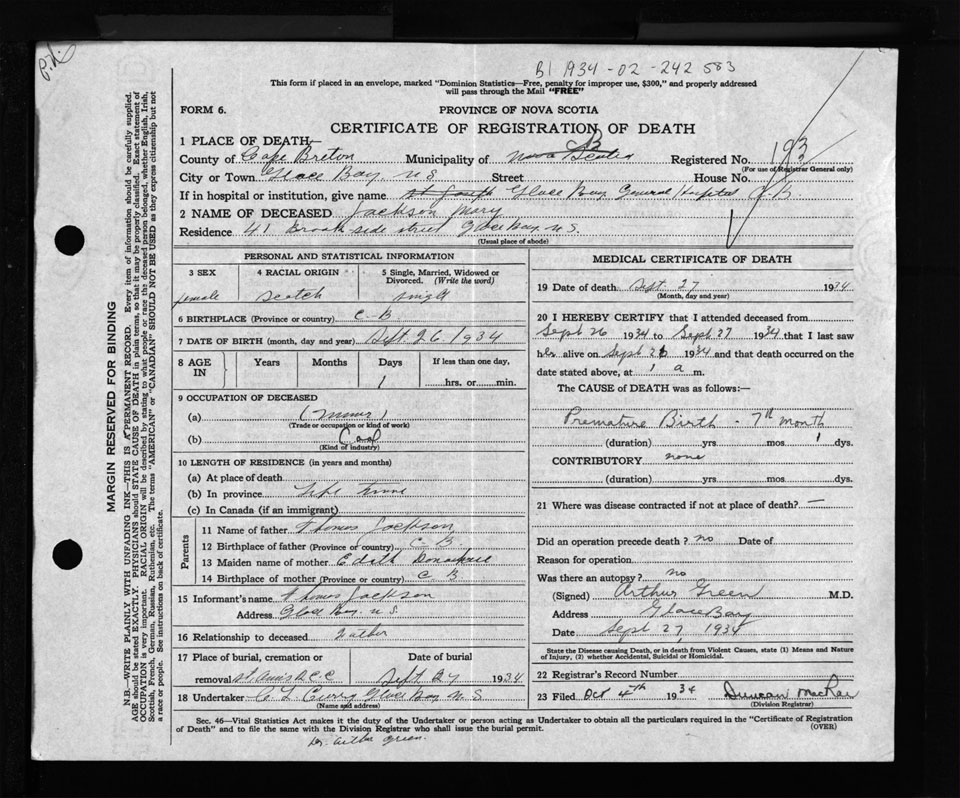 P.N.
B1 1934-02-242 583
This form if placed in an envelope, marked "Dominion Statistics—Free, penalty for improper use, $300," and properly addressed
will pass through the Mail "FREE"
FORM 6.
PROVINCE OF NOVA SCOTIA
CERTIFICATE OF REGISTRATION OF DEATH
1 PLACE OF DEATH—
County of Cape Breton Municipality of Nova Scotia CB Registered No. 193
(For use of Registrar General only)
City or Town Glace Bay N.S Street
If in hospital or institution, give name st Joseph Glace Bay General Hospital CB
2 NAME OF DECEASED Jackson Mary
Residence 41 Brookside street Glace Bay N.S.
(Usual place of abode)
PERSONAL AND STATISTICAL INFORMATION
3 SEX 4 RACIAL ORIGIN 5 Single, Married, Widowed or Divorced. (Write the word)
female scotch single
6 BIRTHPLACE (Province or country) C-B
7 DATE OF BIRTH (month, day and year) Sept 26 1934
8 AGE IN Years Months Days If less than one day,
1 hrs. or min.
9 OCCUPATION OF DECEASED
(a) (Miner)
(Trade or occupation or kind of work)
(b) Coal
(Kind of industry)
10 LENGTH OF RESIDENCE (in years and months)
(a) At place of death
(b) In province Life time
(c) In Canada (if an immigrant)
Parents
11 Name of father Thomas Jackson
12 Birthplace of father (Province or country) C-B
13 Maiden name of mother Edith
14 Birthplace of mother (Province or country) C B
15 Informant's name Thomas Jackson
Address Glace Bay N.S.
16 Relationship to deceased Father
17 Place of burial, cremation or Date of burial
removal St Anns R.C.C Sept 27 1934
18 Undertaker C L Curry Glace Bay N S
(Name and address)
MEDICAL CERTIFICATE OF DEATH
19 Date of death Sept. 27 1934
(Month, day and year)
20 I HEREBY CERTIFY that I attended deceased from
Sept 26 1934 to Sept 27 1934 that I last saw
her alive on Sept 26 1934 and that death occurred on the
date stated above, at 1 a m.
The CAUSE of DEATH was as follows:—
Premature Birth - 7th month
(duration) yrs. mos. 1 dys.
CONTRIBUTORY none
(duration) yrs. mos. dys.
21 Where was disease contracted if not at place of death? —
Did an operation precede death? no Date of
Reason for operation
Was there an autopsy? no
(Signed) Arthur Green M.D.
Address Glace Bay
Date Sept 27, 1934
State the Disease causing Death, or in death from Violent Causes, state (1) Means and Nature
of Injury, (2) whether Accidental, Suicidal or Homicidal.
22 Registrar's Record Number
23 Filed Oct 4th 1934 Duncan MacRae
(Division Registrar)
Sec. 46—Vital Statistics Act makes it the duty of the Undertaker or person acting as Undertaker to obtain all the particulars required in the "Certificate of Registration
of Death" and to file the same with the Division Registrar who shall issue the burial permit.
(OVER)
Dr. Arthur Green.
MARGIN RESERVED FOR BINDING
N.B.—WRITE PLAINLY WITH UNFADING INK—THIS IS A PERMANENT RECORD. Every item of information should be carefully supplied.
AGE should be stated EXACTLY. PHYSICIANS should STATE CAUSE OF DEATH in plain terms, so that it may be properly classified. Exact statement of
OCCUPATION is very important. RACIAL ORIGIN will be described by stating to what people or race the deceased person belonged, whether English, Irish,
Scottish, French, German, Russian, Ruthenian, etc. The terms "AMERICAN" or "CANADIAN" SHOULD NOT BE USED as they express citizenship but not
a race or people. See instructions on back of certificate.